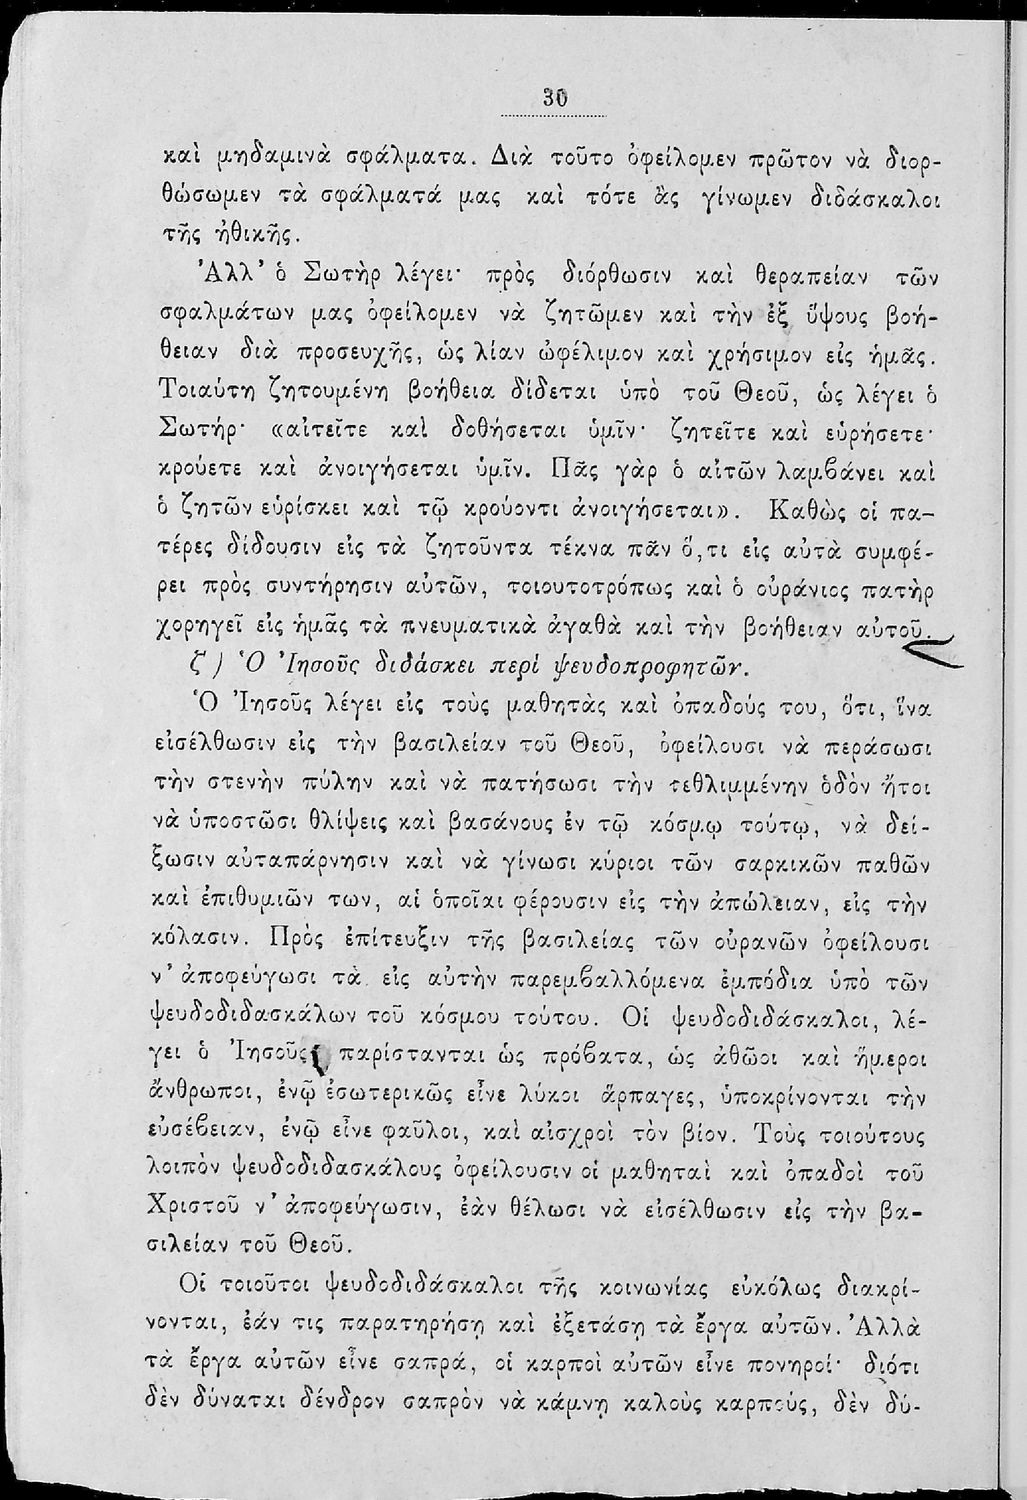 30
καὶ μηδαμινὰ σφάλματα. Διὰ τοῦτο ὀφείλομεν πρῶτον νὰ διορ-
θώσωμεν τὰ σφάλματά μας καὶ τότε ἂς γίνωμεν διδάσκαλοι
τῆς ἠθικῆς.
Ἀλλ’ ὁ Σωτὴρ λέγει· πρὸς διόρθωσιν καὶ θεραπείαν τῶν
σφαλμάτων μας ὀφείλομεν νὰ ζητῶμεν καὶ τὴν ἐξ ὕψους βοή-
θειαν διὰ προσευχῆς, ὡς λίαν ὠφέλιμον καὶ χρήσιμον εἰς ἡμᾶς.
Τοιαύτη ζητουμένη βοήθεια δίδεται ὑπὸ τοῦ Θεοῦ, ὡς λέγει ὁ
Σωτήρ· «αἰτεῖτε καὶ δοθήσεται ὑμῖν· ζητεῖτε καὶ εὑρήσετε·
κρούετε καὶ ἀνοιγήσεται ὑμῖν. Πᾶς γὰρ ὁ αἰτῶν λαμβάνει καὶ
ὁ ζητῶν εὑρίσκει καὶ τῷ κρούοντι ἀνοιγήσεται». Καθὼς οἱ πα-
τέρες δίδουσιν εἰς τὰ ζητοῦντα τέκνα πᾶν ὅ,τι εἰς αὐτὰ συμφέ-
ρει πρὸς συντήρησιν αὐτῶν, τοιουτοτρόπως καὶ ὁ οὐράνιος πατὴρ
χορηγεῖ εἰς ἡμᾶς τὰ πνευματικὰ ἀγαθὰ καὶ τὴν βοήθειαν αὐτοῦ.
ζ) Ὁ Ἰησοῦς διδάσκει περὶ ψευδοπροφητῶν.
Ὁ Ἰησοῦς λέγει εἰς τοὺς μαθητὰς καὶ ὀπαδούς του, ὅτι, ἵνα
εἰσέλθωσιν εἰς τὴν βασιλείαν τοῦ Θεοῦ, ὀφείλουσι νὰ περάσωσι
τὴν στενὴν πύλην καὶ νὰ πατήσωσι τὴν τεθλιμμένην ὁδὸν ἤτοι
νὰ ὑποστῶσι θλίψεις καὶ βασάνους ἐν τῷ κόσμῳ τούτῳ, νὰ δεί-
ξωσιν αὐταπάρνησιν καὶ νὰ γίνωσι κύριοι τῶν σαρκικῶν παθῶν
καὶ ἐπιθυμιῶν των, αἱ ὁποῖαι φέρουσιν εἰς τὴν ἀπώλειαν, εἰς τὴν
κόλασιν. Πρὸς ἐπίτευξιν τῆς βασιλείας τῶν οὐρανῶν ὀφείλουσι
ν’ ἀποφεύγωσι τὰ εἰς αὐτὴν παρεμβαλλόμενα ἐμπόδια ὑπὸ τῶν
ψευδοδιδασκάλων τοῦ κόσμου τούτου. Οἱ ψευδοδιδάσκαλοι, λέ-
γει ὁ Ἰησοῦς, παρίστανται ὡς πρόβατα, ὡς ἀθῶοι καὶ ἥμεροι
ἄνθρωποι, ἐνῷ ἐσωτερικῶς εἶνε λύκοι ἅρπαγες, ὑποκρίνονται τὴν
εὐσέβειαν, ἐνῷ εἶνε φαῦλοι, καὶ αἰσχροὶ τὸν βίον. Τοὺς τοιούτους
λοιπὸν ψευδοδιδασκάλους ὀφείλουσιν οἱ μαθηταὶ καὶ ὀπαδοὶ τοῦ
Χριστοῦ ν’ ἀποφεύγωσιν, ἐὰν θέλωσι νὰ εἰσέλθωσιν εἰς τὴν βα-
σιλείαν τοῦ Θεοῦ.
Οἱ τοιοῦτοι ψευδοδιδάσκαλοι τῆς κοινωνίας εὐκόλως διακρί-
νονται, ἐάν τις παρατηρήσῃ καὶ ἐξετάσῃ τὰ ἔργα αὐτῶν. Ἀλλὰ
τὰ ἔργα αὐτῶν εἶνε σαπρά, οἱ καρποὶ αὐτῶν εἶνε πονηροί· διότι
δὲν δύναται δένδρον σαπρὸν νὰ κάμνῃ καλοὺς καρπούς, δὲν δύ-